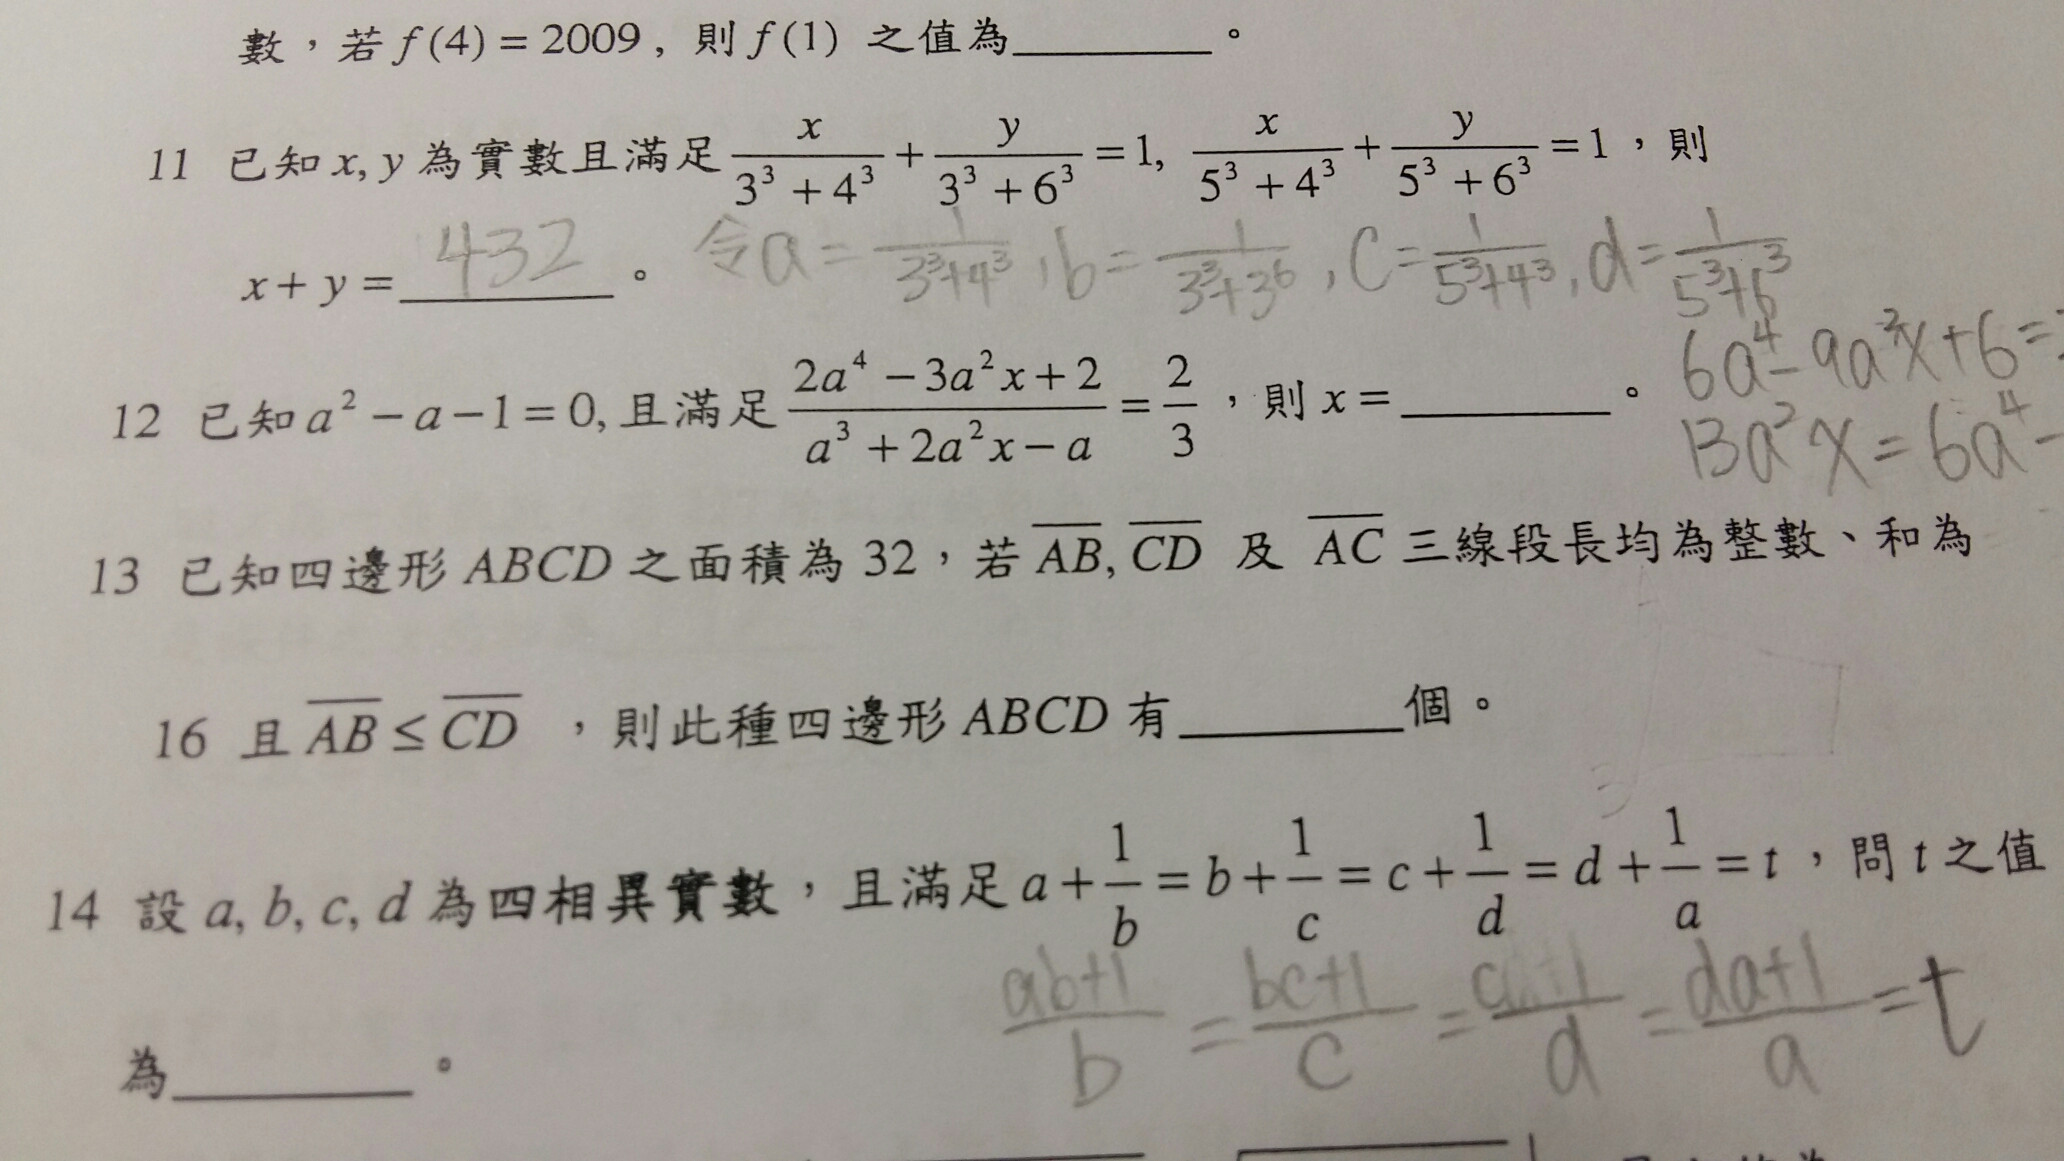 數，若 f(4) = 2009, 則 f(1) 之值為______。
11 已知 x, y 為實數且滿足 x/(3³+4³) + y/(3³+6³) = 1, x/(5³+4³) + y/(5³+6³) = 1，則
x + y = 432。 令a = 1/(3³+4³), b = 1/(3³+3⁶), c = 1/(5³+4³), d = 1/(5³+6³)
6a⁴-9a²x+6=
12 已知 a² - a - 1 = 0, 且滿足 (2a⁴ - 3a²x + 2)/(a³ + 2a²x - a) = 2/3，則 x = ______。
13a²x = 6a⁴-
13 已知四邊形 ABCD 之面積為 32，若 A̅B̅, C̅D̅ 及 A̅C̅ 三線段長均為整數、和為
16 且 A̅B̅ ≤ C̅D̅，則此種四邊形 ABCD 有______個。
14 設 a, b, c, d 為四相異實數，且滿足 a + 1/b = b + 1/c = c + 1/d = d + 1/a = t，問 t 之值
(ab+1)/b = (bc+1)/c = (cd+1)/d = (da+1)/a = t
為______。